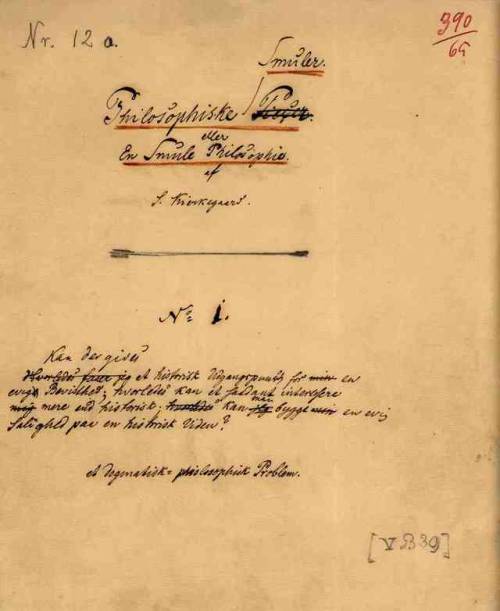 Nr. 12 a.
390
65
Smuler.
Philosophiske Piecer.
eller
En Smule Philosophie.
af
S. Kierkegaard.
No 1.
Kan der gives
Hvorledes faaer jeg et historisk Udgangspunkt for min en
evig Bevidsthed; hvorledes kan et saadant interessere
mig mere end historisk; hvorledes kan jeg man bygge min en evig
Salighed paa en historisk Viden?
et dogmatisk-philosophisk Problem.
[V B 39]